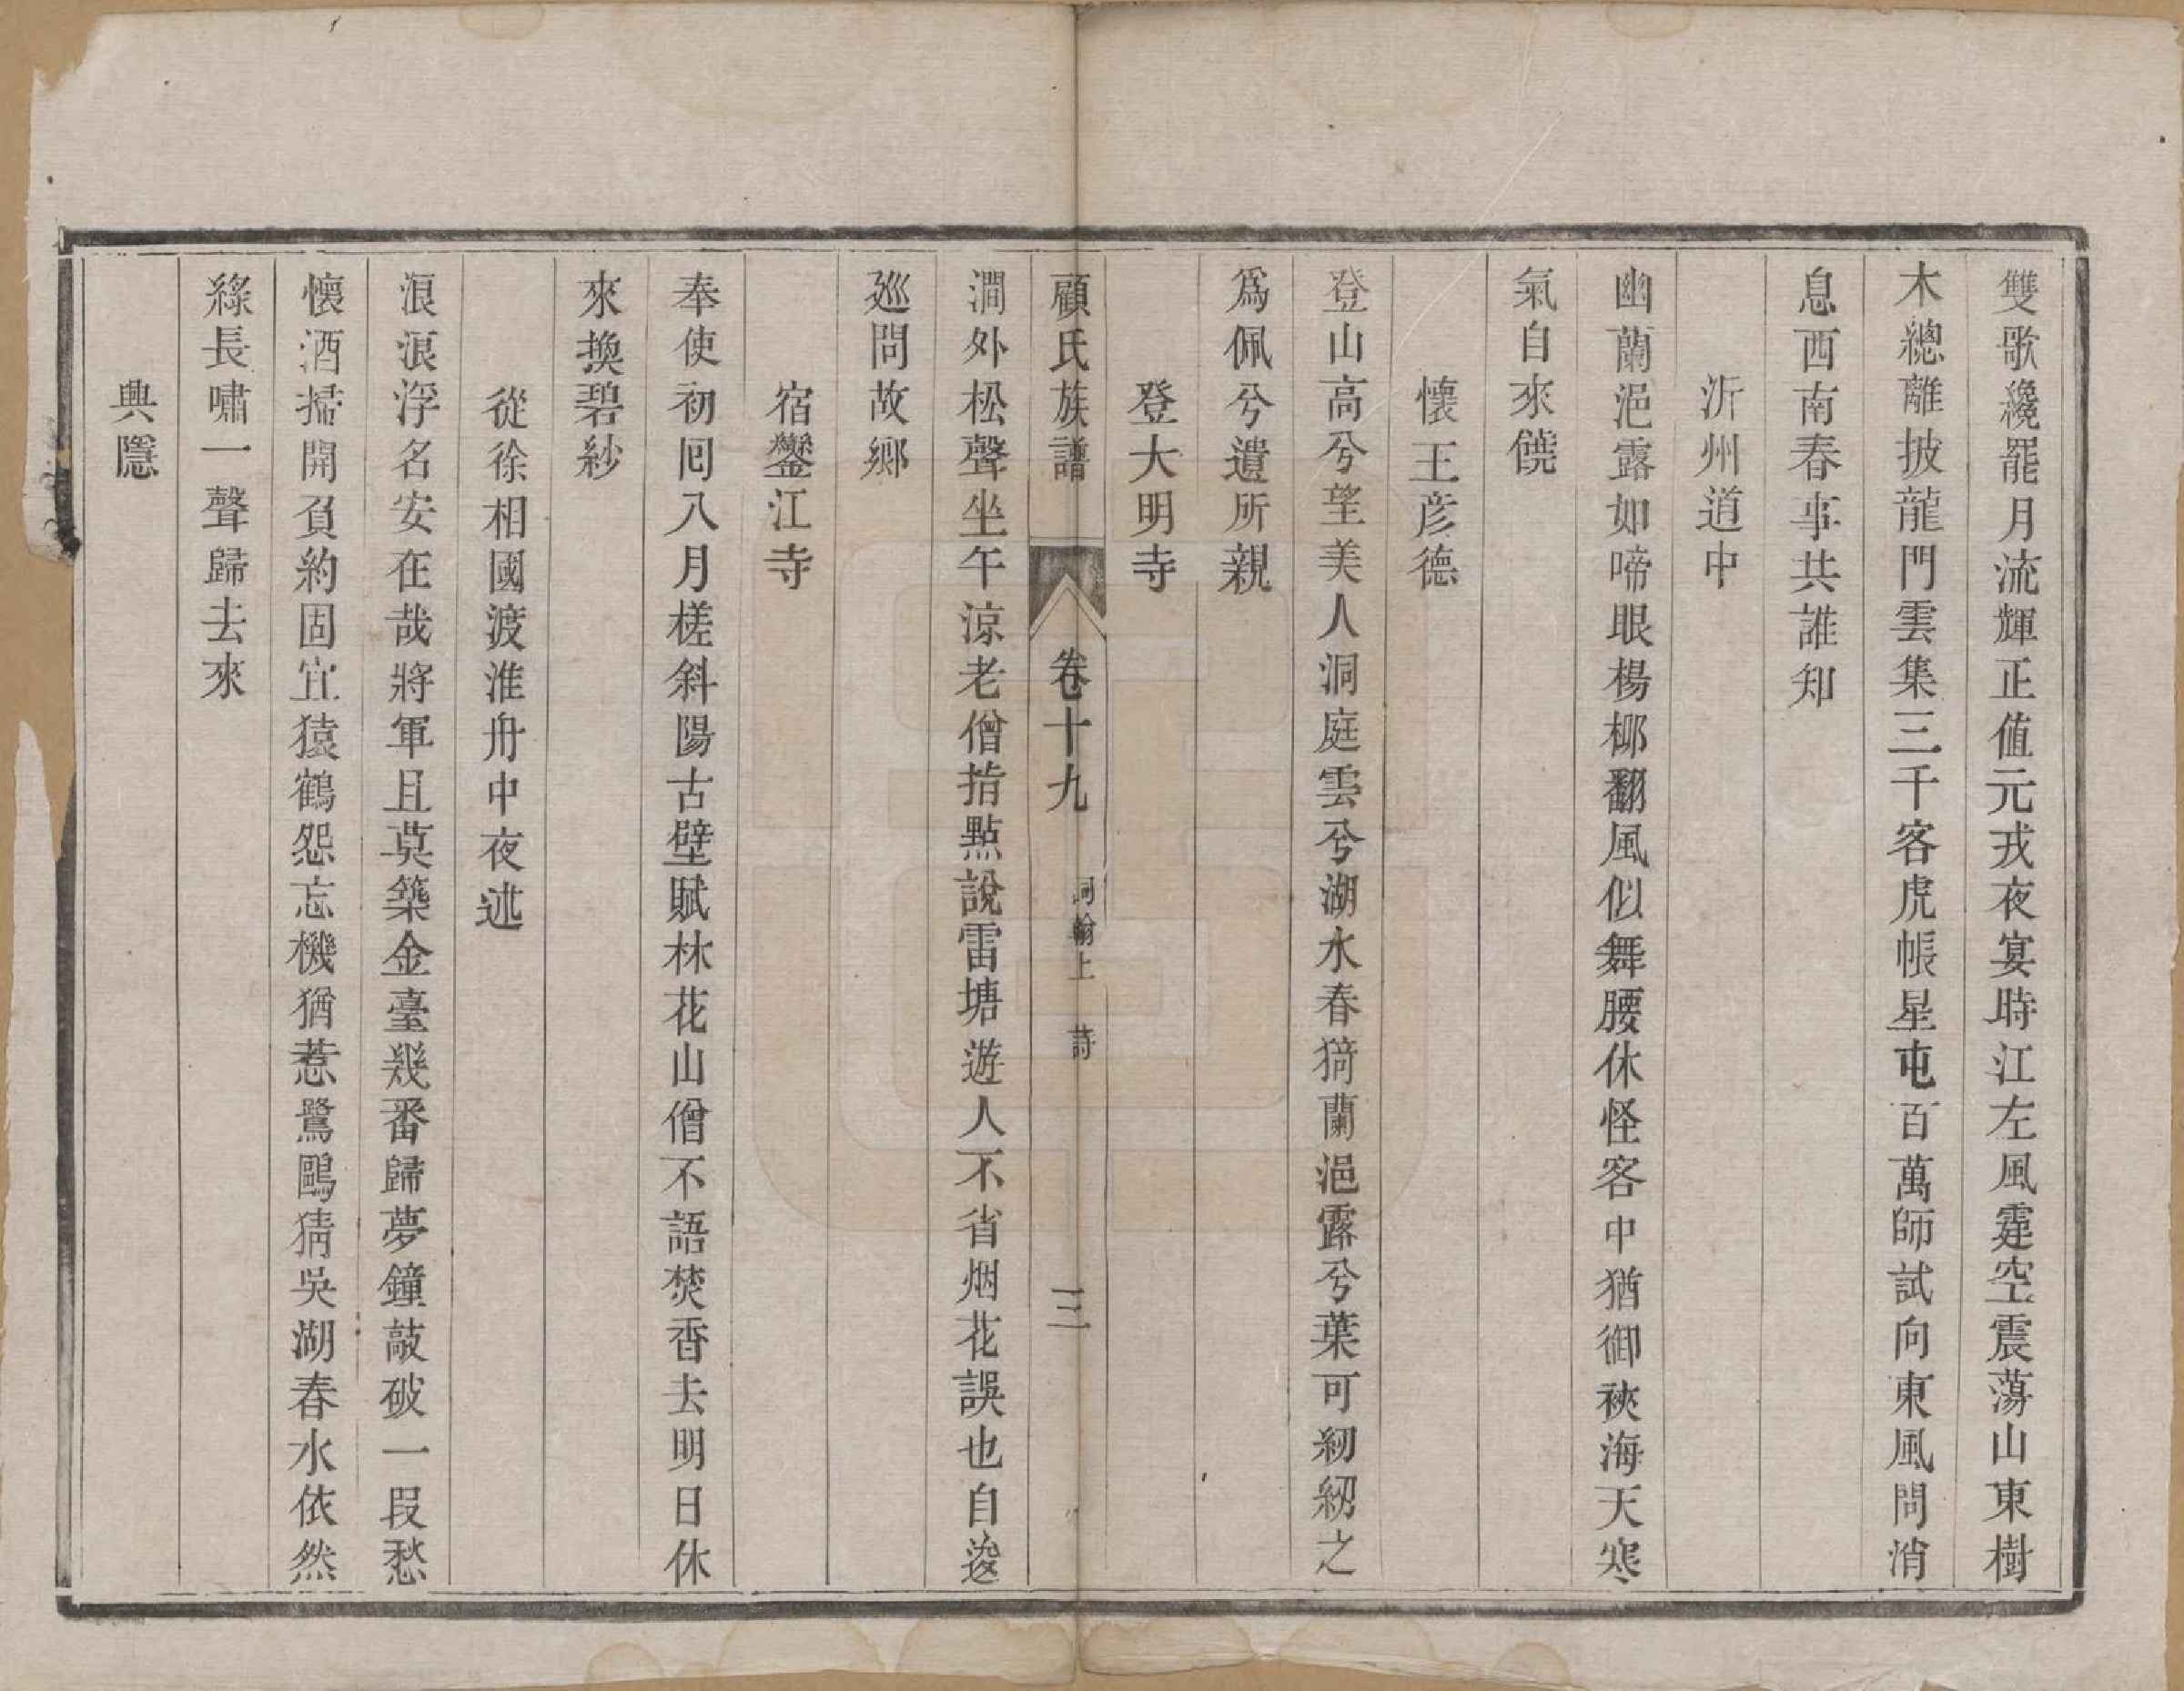 雙歌纔罷月流輝正值元戎夜宴時江左風霆空震蕩山東樹
木總離披龍門雲集三千客虎帳星屯百萬師試向東風問消
息西南春事共誰知
沂州道中
幽蘭浥露如啼眼楊柳翻風似舞腰休怪客中猶御裌海天寒
氣自來饒
懷王彥德
登山高兮望美人洞庭雲兮湖水春猗蘭浥露兮葉可紉紉之
爲佩兮遺所親
登大明寺
顧氏族譜
卷十九
詞翰上 詩
三
澗外松聲坐午涼老僧指點說雷塘遊人不省烟花誤也自逡
廵問故鄉
宿鑾江寺
奉使初囘八月槎斜陽古壁賦林花山僧不語焚香去明日休
來換碧紗
從徐相國渡淮舟中夜述
浪浪浮名安在哉將軍且莫築金臺幾番歸夢鐘敲破一段愁
懷酒掃開負約固宜猿鶴怨忘機猶惹鷺鷗猜吳湖春水依然
綠長嘯一聲歸去來
典隱